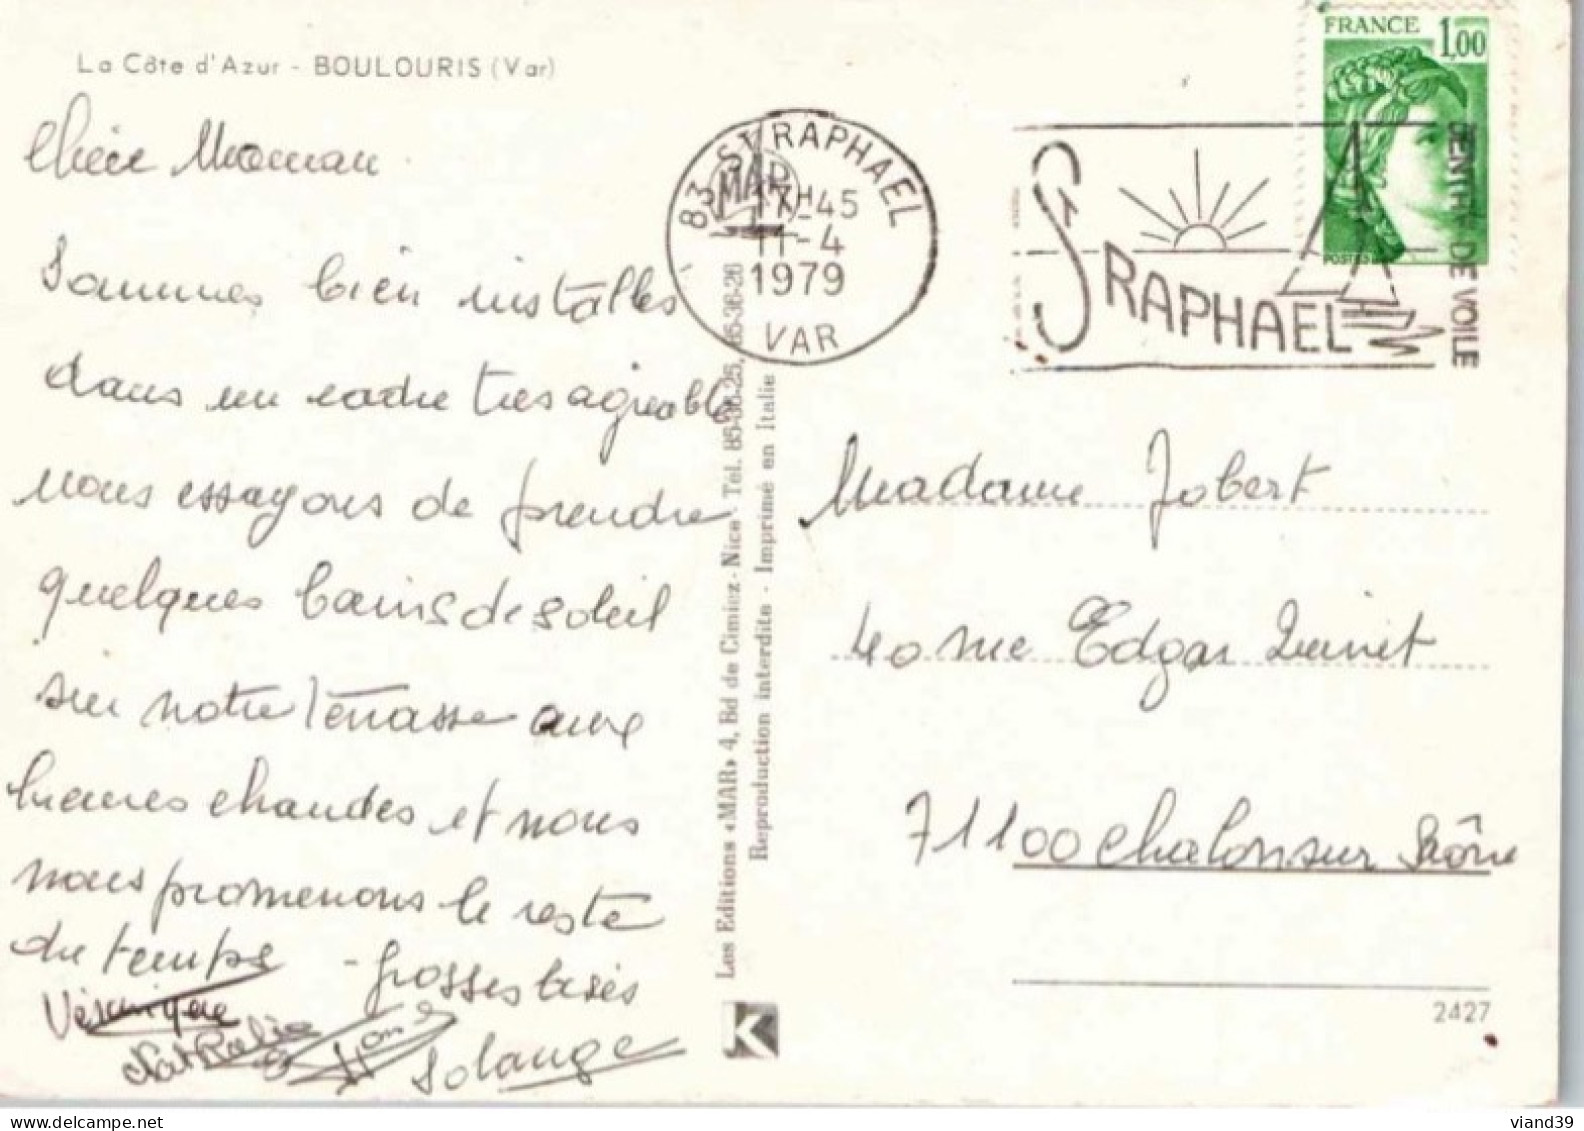 La Côte d'Azur - BOULOURIS (Var)
Chère Maman
Sommes bien installés
dans un cadre tres agréable
nous essayons de prendre
quelques bains de soleil
sur notre Terrasse aux
heures chaudes et nous
nous promenons le reste
du temps - grosses bises
Véronique
Nathalie
Solange
Les Editions «MAR» 4, Bd de Cimiez - Nice - Tél. 85-36-25, 85-36-26
Reproduction interdite - Imprimé en Italie
MAR
83 ST RAPHAEL
17H45
11-4
1979
VAR
ST RAPHAEL
DE VOILE
FRANCE 1,00
Madame Jobert
40 rue Edgar Quinet
71100 Chalon sur Saône
2427
K
viand39